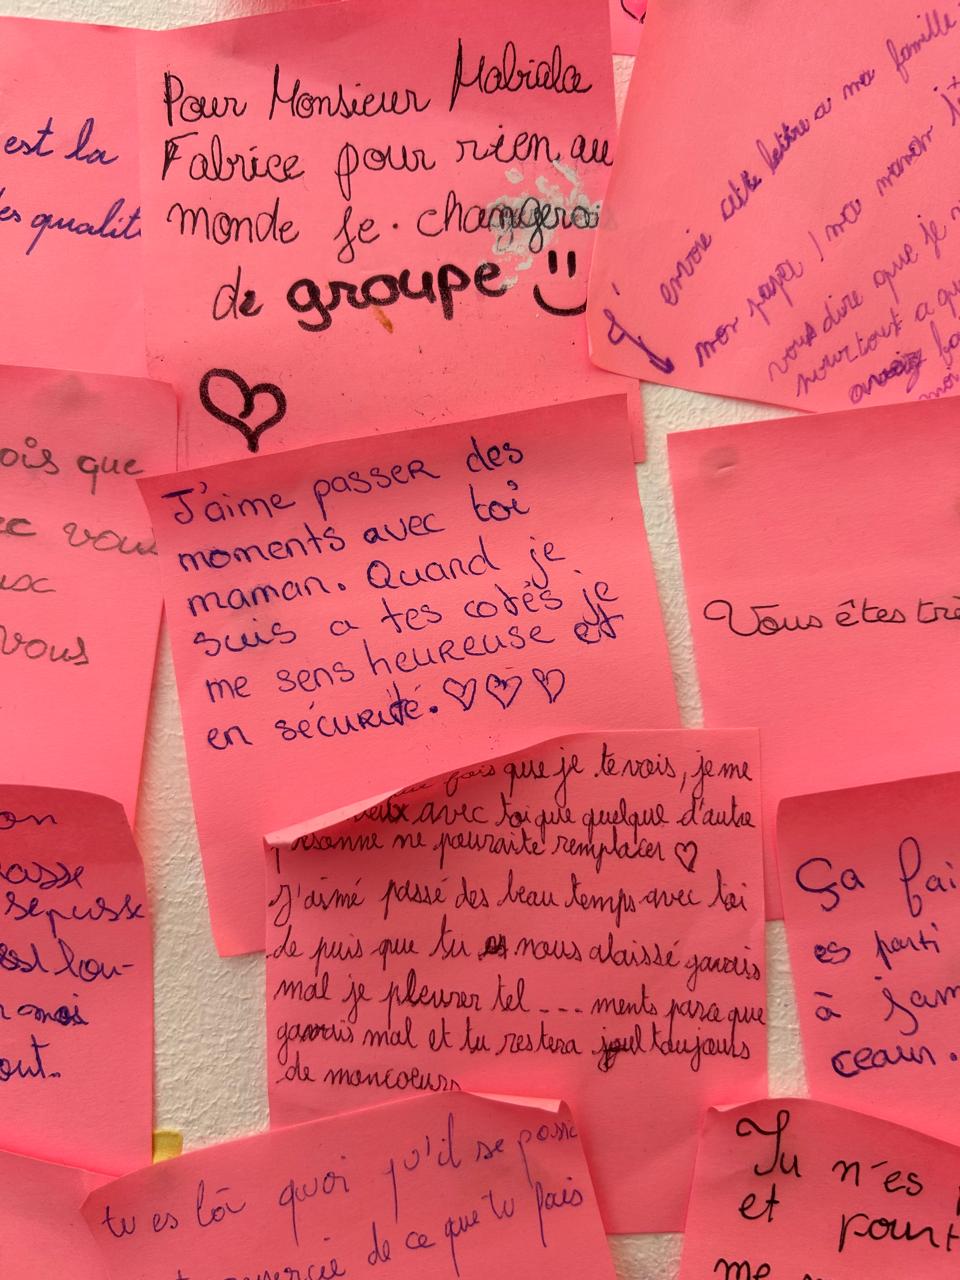 est la
es qualit
Pour Monsieur Mabiala
Fabrice pour rien au
monde je. changerais
de groupe
J' envoie cette lettre a ma famille
mon papa / ma maman
vous dire que je
surtout a
ois que
ec vous
ux
vous
J'aime passer des
moments avec toi
maman. Quand je
suis a tes cotés je
me sens heureuse et
en sécurité.
Vous êtes trè
fois que je te vois, je me
avec toi que quelque d'autre
personne ne pouraite remplacer
J'aimé passé des beau temps avec toi
de puis que tu nous alaissé javais
mal je pleurer tel --- ments parce que
javais mal et tu restera toujours
de moncoeurs
on
asse
se pusse
est lou-
moi
out.
Ça fai
es parti
à jam
ceaux.
tu es là quoi qu'il se passe
de ce que tu fais
Tu n'es
et pourt
me